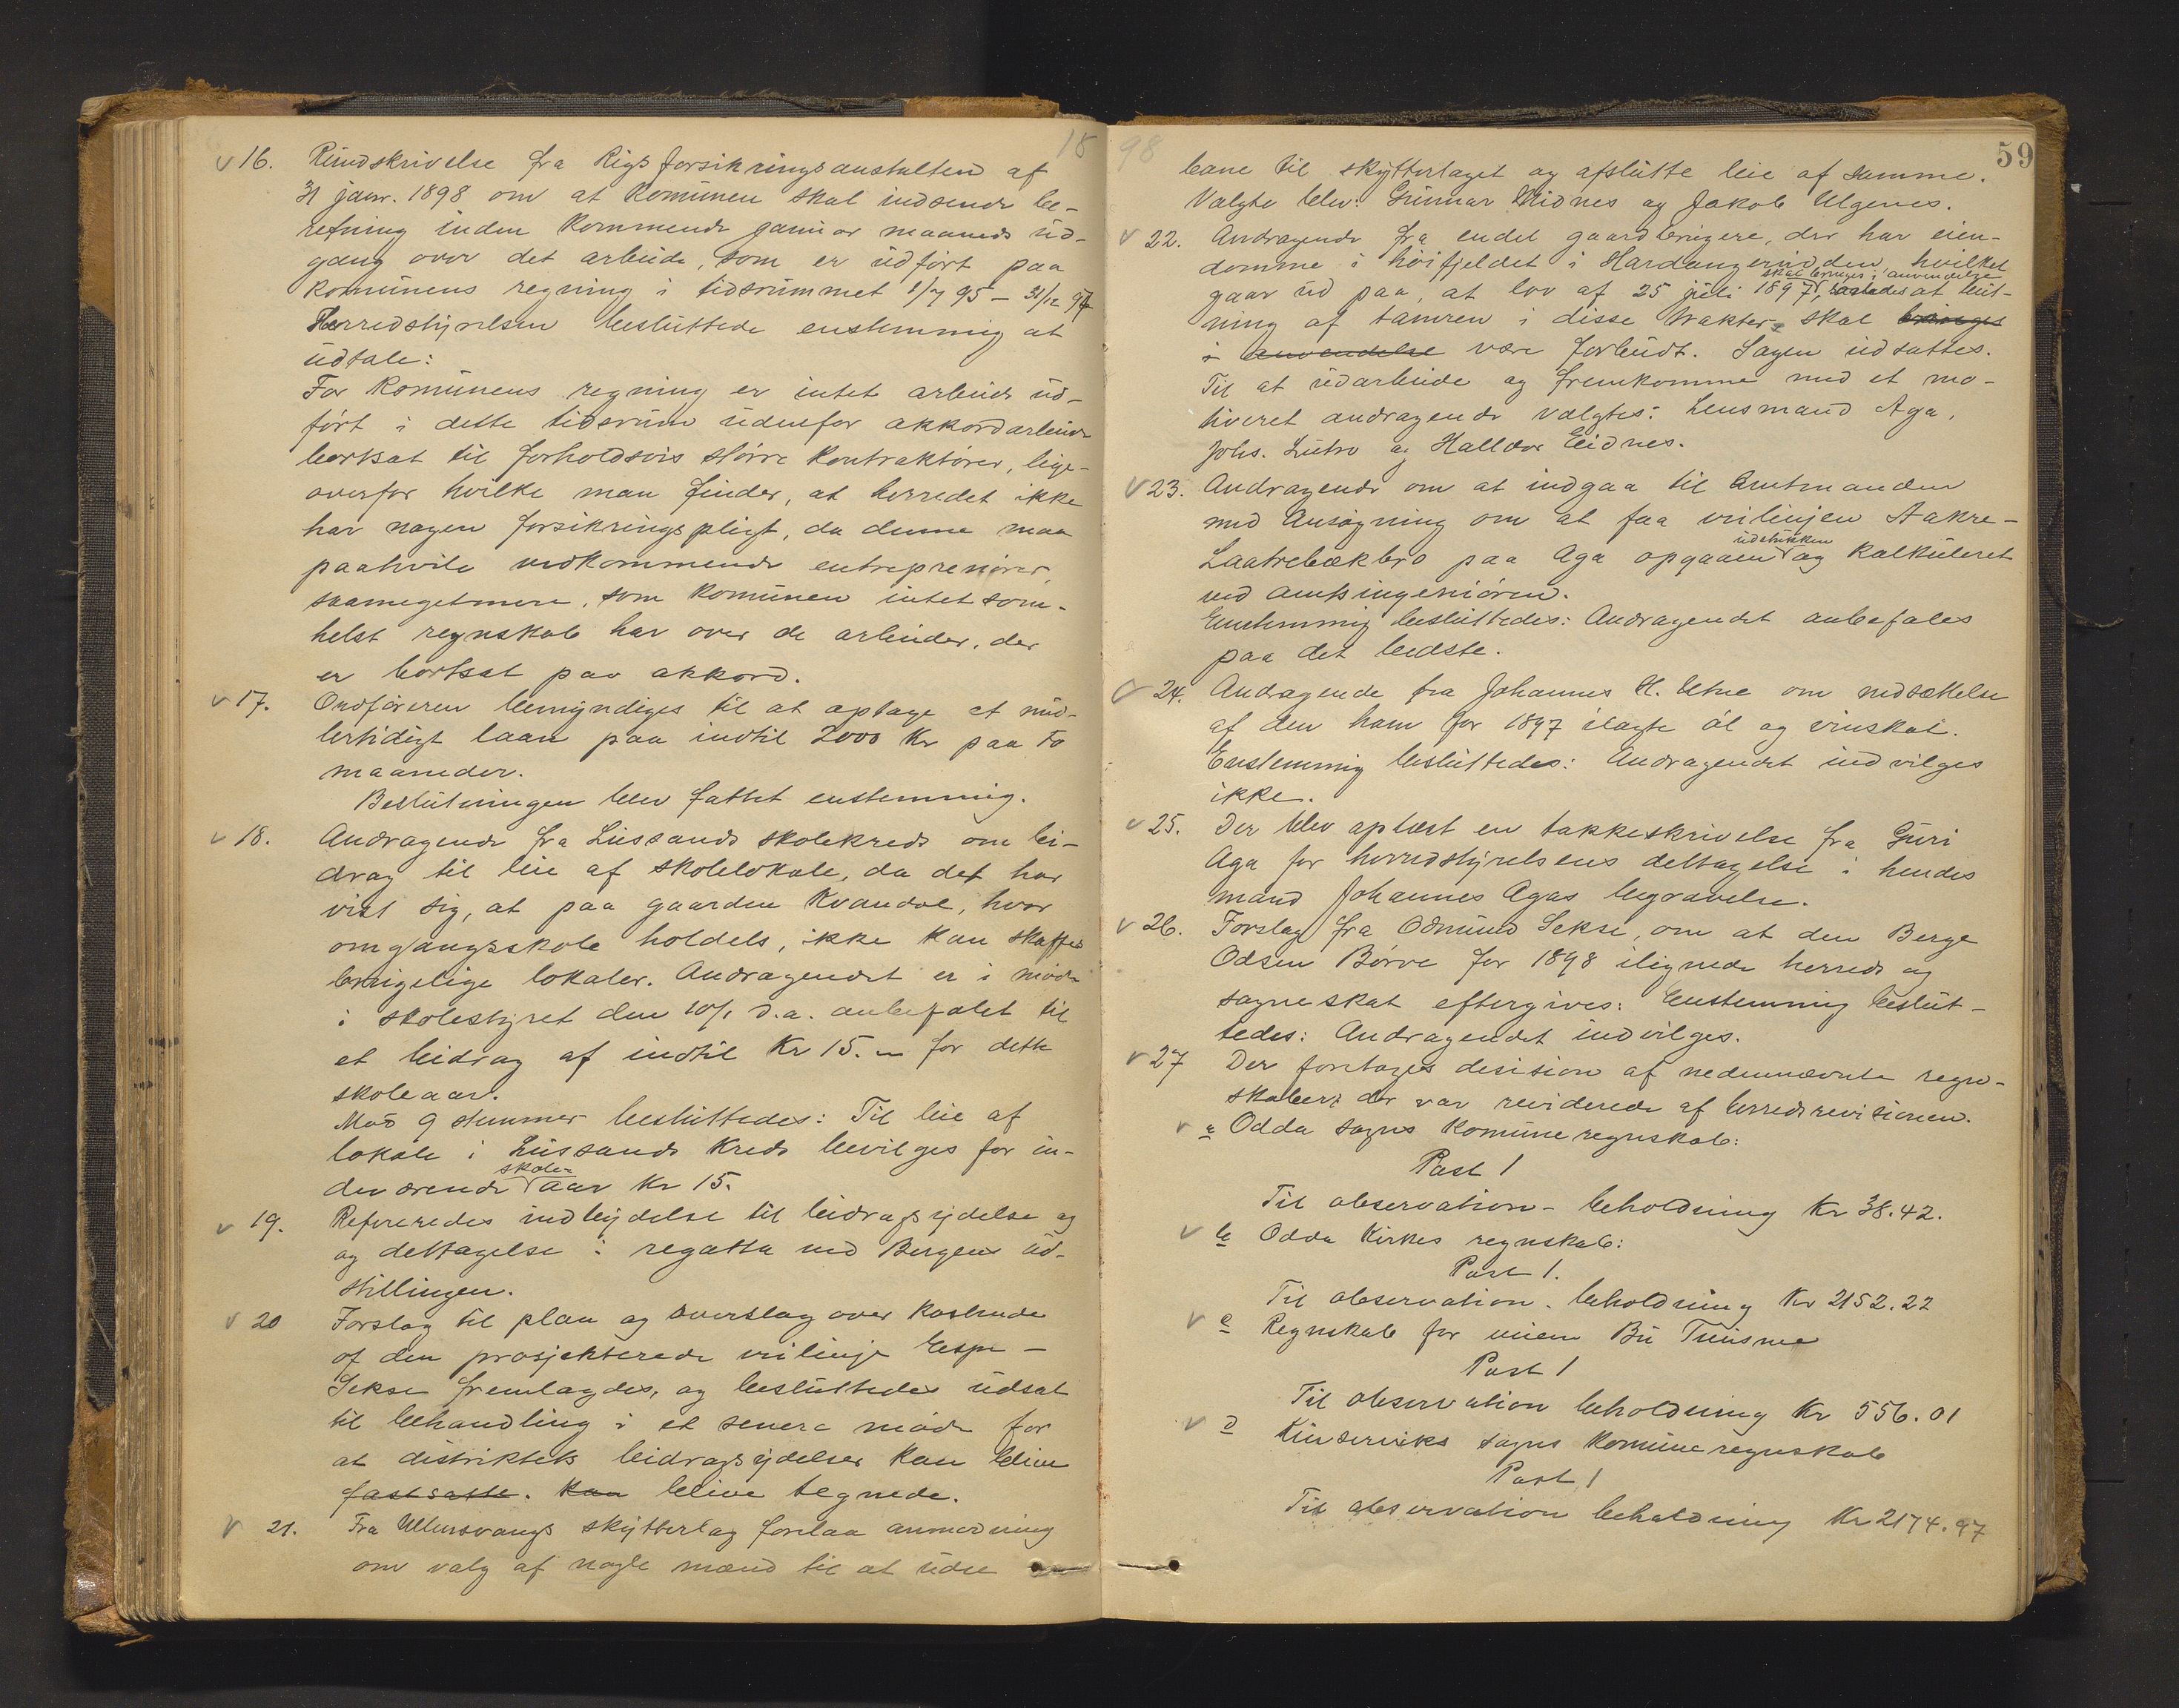 18
16. Rundskrivelse fra Rigsforsikringsanstalten af
31 janr. 1898 om at Komunen skal indsende be-
retning inden kommende januar maaneds ud-
gang over det arbeide, som er udført paa
komunens regning i tidsrummet 1/7 95 - 31/12 97
Herredstyrelsen besluttede enstemmig at
udtale:
For Komunens regning er intet arbeide ud-
ført i dette tidsrum udenfor akkordarbeide
bortsat til forholdsvis større Kontraktører, lige-
overfor hvilke man finder, at herredet ikke
har nogen forsikringspligt, da denne maa
paahvile vedkommende entreprenører,
saameget mere, som Komunen intet som-
helst regnskab har over de arbeider, der
er bortsat paa akkord.
17. Ordføreren bemyndiges til at optage et mid-
lertidigt laan paa indtil 2000 Kr paa to
maaneder.
Beslutningen blev fattet enstemmig.
18. Andragende fra Lussands skolekreds om bi-
drag til leie af skolelokale, da det har
vist sig, at paa gaarden Kvandal, hvor
omgangsskole holdels, ikke kan skaffes
brugelige lokaler. Andragendet er i møde
i skolestyret den 10/1 d.a. anbefalet til
et bidrag af indtil Kr 15.- for dette
skoleaar.
Mod 9 stemmer besluttedes: Til leie af
lokale i Lussands Kreds bevilges for in-
deværende skole-aar Kr 15.
19. Refereredes indbydelse til bidragsydelse og
og deltagelse i regatta ved Bergens ud-
stillingen.
20 Forslag til plan og overslag over kostende
af den prosjekterede veilinje Espe -
Sekse fremlagdes, og besluttedes udsat
til behandling i et senere møde for
at distriktets bidragsydelser kan blive
fastsatte. kan blive tegnede.
21. Fra Ullensvangs skytterlag forelaa anmodning
om valg af nogle mænd til at udse
98
59
bane til skytterlaget og afslutte leie af samme.
Valgte blev: Gunnar Eidnes og Jakob Ulgenes.
22. Andragende fra endel gaardbrugere, der har eien-
domme i høifjeldet i Hardangervidden, hvilket
skal bringes i anvendelse
gaar ud paa, at lov af 25 juli 1897, saaledes at beit-
ning af tamren i disse trakter skal bringes
i anvendelse være forbudt. Sagen udsattes.
Til at udarbeide og fremkomme med et mo-
tiveret andragende valgtes: Lensmand Aga,
Johs. Lutro og Halldor Eidnes.
23. Andragende om at indgaa til Amtmanden
med Ansøgning om at faa veilinjen Aakre-
udstukken
Laatrebækbro paa Aga opgaaen og Kalkuleret
ved amtsingeniøren.
Enstemmig besluttedes: Andragendet anbefales
paa det bedste.
24. Andragende fra Johannes H. Utne om nedsættelse
af den ham for 1897 ilagte øl og vinskat.
Enstemmig besluttedes: Andragendet indvilges
ikke.
25. Der blev oplæst en takkeskrivelse fra Guri
Aga for herredstyrelsens deltagelse i hendes
mand Johannes Agas begravelse.
26. Forslag fra Odmund Sekse, om at den Berge
Odsen Børve for 1898 ilignede herreds og
sogneskat eftergives: Enstemmig beslut-
tedes: Andragendet indvilges.
27 Der foretoges desision af nedennævnte regn-
skaber, der var reviderede af herredsrevisionen.
a Odda sogns Komuneregnskab:
Post 1
Til observation - beholdning Kr 38.42.
b Odda Kirkes regnskab:
Post 1.
Til observation. beholdning Kr 2152.22
c Regnskab for veien Bu Tuisme
Post 1
Til observation beholdning Kr 556.01
d Kinserviks sogns Komuneregnskab
Post 1
Til observation beholdning Kr 2174.97